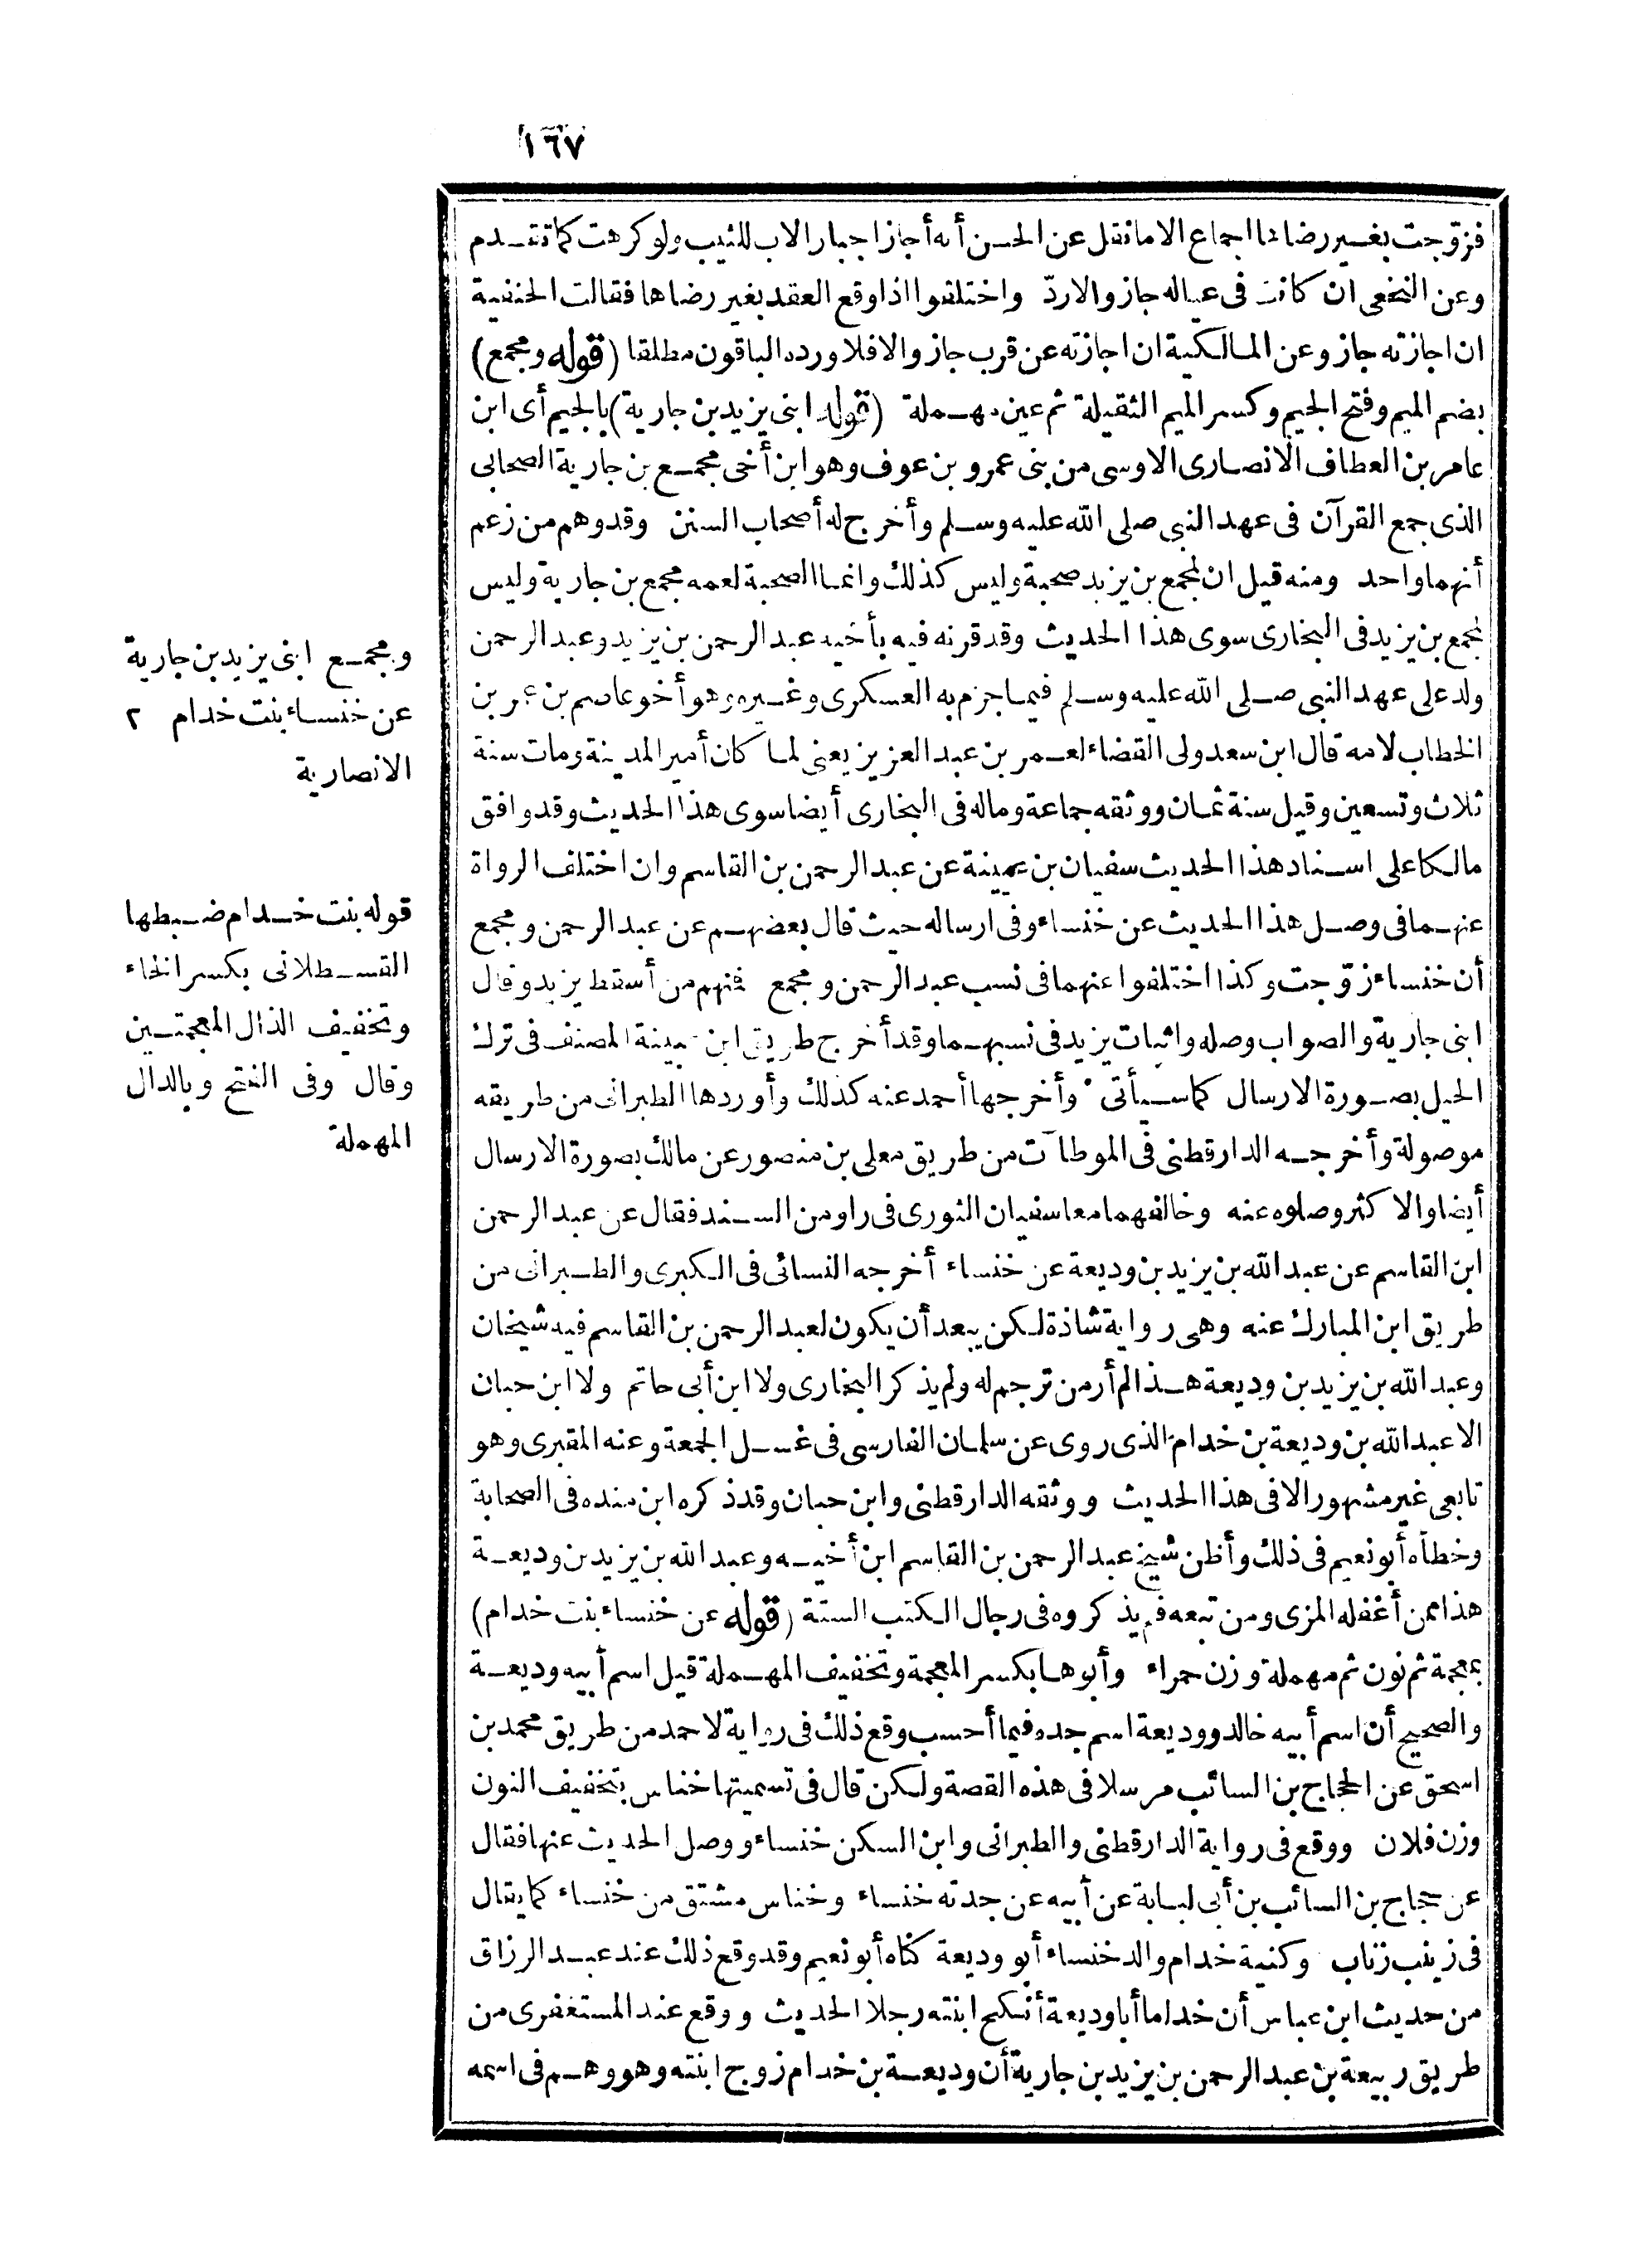 ١٦٧
فزوّجت بغير رضاها اجماع الا ما نقل عن الحسن أنه أجاز اجبار الاب للثيب ولو كرهت كما تقدم
وعن النخعى ان كانت فى عياله جاز والا ردّ واختلفوا اذا وقع العقد بغير رضاها فقالت الحنفية
ان اجازته جاز وعن المالكية ان اجازته عن قرب جاز والا فلا ورده الباقون مطلقا (قوله ومجمع)
بضم الميم وفتح الجيم وكسر الميم الثقيلة ثم عين مهملة (قوله ابنى يزيد بن جارية) بالجيم أى ابن
عامر بن العطاف الأنصارى الاوسى من بنى عمرو بن عوف وهو ابن أخى مجمع بن جارية الصحابى
الذى جمع القرآن فى عهد النبى صلى الله عليه وسلم وأخرج له أصحاب السنن وقد وهم من زعم
أنهما واحد ومنه قيل ان لمجمع بن يزيد صحبة وليس كذلك وانما الصحبة لعمه مجمع بن جارية وليس
لمجمع بن يزيد فى البخارى سوى هذا الحديث وقد قرنه فيه بأخيه عبد الرحمن بن يزيد وعبد الرحمن
ولد على عهد النبى صلى الله عليه وسلم فيما جزم به العسكرى وغيره وهو أخو عاصم بن عمر بن
الخطاب لامه قال ابن سعد ولى القضاء لعمر بن عبد العزيز يعنى لما كان أمير المدينة ومات سنة
ثلاث وتسعين وقيل سنة ثمان ووثقه جماعة وماله فى البخارى أيضا سوى هذا الحديث وقد وافق
مالكا على اسناد هذا الحديث سفيان بن عيينة عن عبد الرحمن بن القاسم وان اختلف الرواة
عنهما فى وصل هذا الحديث عن خنساء وفى ارساله حيث قال بعضهم عن عبد الرحمن ومجمع
أن خنساء زوّجت وكذا اختلفوا عنهما فى نسب عبد الرحمن ومجمع فمنهم من أسقط يزيد وقال
ابنى جارية والصواب وصله واثبات يزيد فى نسبهما وقد أخرج طريق ابن عيينة المصنف فى ترك
الحيل بصورة الارسال كما سيأتى وأخرجها أحمد عنه كذلك وأوردها الطبرانى من طريقه
موصولة وأخرجه الدارقطنى فى الموطآت من طريق معلى بن منصور عن مالك بصورة الارسال
أيضا والاكثر وصلوه عنه وخالفهما معا سفيان الثورى فى راو من السند فقال عن عبد الرحمن
ابن القاسم عن عبد الله بن يزيد بن وديعة عن خنساء أخرجه النسائى فى الكبرى والطبرانى من
طريق ابن المبارك عنه وهى رواية شاذة لكن يبعد أن يكون لعبد الرحمن بن القاسم فيه شيخان
وعبد الله بن يزيد بن وديعة هذا لم أر من ترجم له ولم يذكر البخارى ولا ابن أبى حاتم ولا ابن حبان
الا عبد الله بن وديعة بن خدام الذى روى عن سلمان الفارسى فى غسل الجمعة وعنه المقبرى وهو
تابعى غير مشهور الا فى هذا الحديث ووثقه الدارقطنى وابن حبان وقد ذكره ابن منده فى الصحابة
وخطأه أبو نعيم فى ذلك وأظن شيخ عبد الرحمن بن القاسم ابن أخيه وعبد الله بن يزيد بن وديعة
هذا ممن أغفله المزى ومن تبعه فلم يذكروه فى رجال الكتب الستة (قوله عن خنساء بنت خدام)
بمعجمة ثم نون ثم مهملة وزن حمراء وأبوها بكسر المعجمة وتخفيف المهملة قيل اسم أبيه وديعة
والصحيح أن اسم أبيه خالد ووديعة اسم جده فيما أحسب وقع ذلك فى رواية لاحمد من طريق محمد بن
اسحق عن الحجاج بن السائب مرسلا فى هذه القصة ولكن قال فى تسميتها خناس بتخفيف النون
وزن فلان ووقع فى رواية الدارقطنى والطبرانى وابن السكن خنساء ووصل الحديث عنها فقال
عن حجاج بن السائب بن أبى لبابة عن أبيه عن جدته خنساء وخناس مشتق من خنساء كما يقال
فى زينب زناب وكنية خدام والد خنساء أبو وديعة كناه أبو نعيم وقد وقع ذلك عند عبد الرزاق
من حديث ابن عباس أن خداما أبا وديعة أنكح ابنته رجلا الحديث ووقع عند المستغفرى من
طريق ربيعة بن عبد الرحمن بن يزيد بن جارية أن وديعة بن خدام زوج ابنته وهو وهم فى اسمه
ومجمع ابنى يزيد بن جارية
عن خنساء بنت خدام ٢
الانصارية
قوله بنت خدام ضبطها
القسطلانى بكسر الخاء
وتخفيف الذال المعجمتين
وقال وفى الفتح وبالدال
المهملة